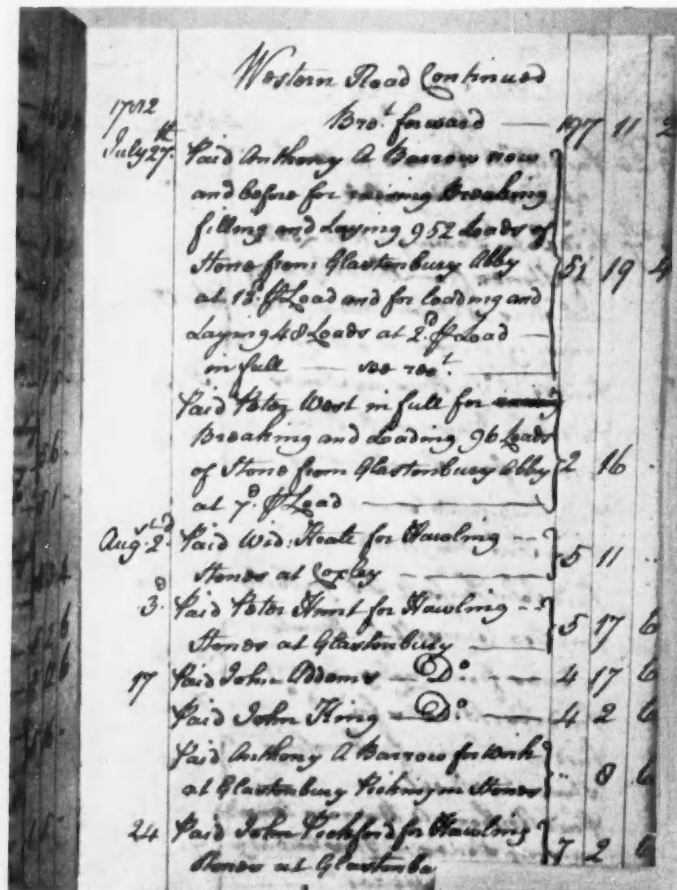 Western Road Continued
1782 Bro.t forward — 197 11 2
July 27.th Paid Anthony A Barrow now
and before for raising Breaking
filling and Laying 952 Loads of
Stone from Glastonbury Abby 51 19 4
at 13.d ⅌ Load and for loading and
Laying 48 Loads at 2.d ⅌ Load
in full — see rec.t
Paid Peter West in full for
Breaking and Loading 96 Loads
of Stone from Glastonbury Abby 2 16 .
at 7.d ⅌ Load
Aug.st 2.d Paid Wid: for Hawling
Stones at Coxley 5 11 ..
3.d Paid Peter Hunt for Hawling
Stones at Glastonbury 5 17 6
17 Paid John Addams — D.o 4 17 6
Paid John King — D.o 4 2 6
Paid Anthony A Barrow for Work
at Glastonbury Stones .. 8 6
24 Paid John Pickford for Hawling
Stones at Glastonbu 7 2 6